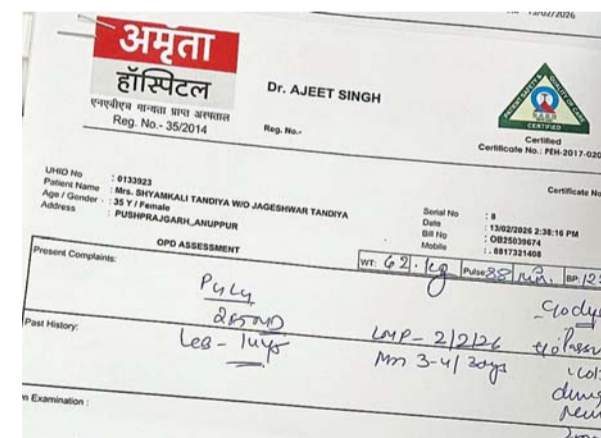 13/02/2026
अमृता
हॉस्पिटल
एनएबीएच मान्यता प्राप्त अस्पताल
Reg. No.- 35/2014
Dr. AJEET SINGH
Reg. No.-
PATIENT SAFETY & QUALITY OF CARE
CERTIFIED
Certified
Certificate No.: PEH-2017-020
Certificate No
UHID No : 0133923
Patient Name : Mrs. SHYAMKALI TANDIYA W/O JAGESHWAR TANDIYA
Age / Gender : 35 Y / Female
Address : PUSHPRAJGARH,,ANUPPUR
Serial No : 8
Date : 13/02/2026 2:38:16 PM
Bill No : OB25039674
Mobile : . 8817321408
OPD ASSESSMENT
WT: 62 kg Pulse 88 BP: 12
Present Complaints:
P4L4
Past History:
LMP - 2/2/26
3-4/30
n Examination :